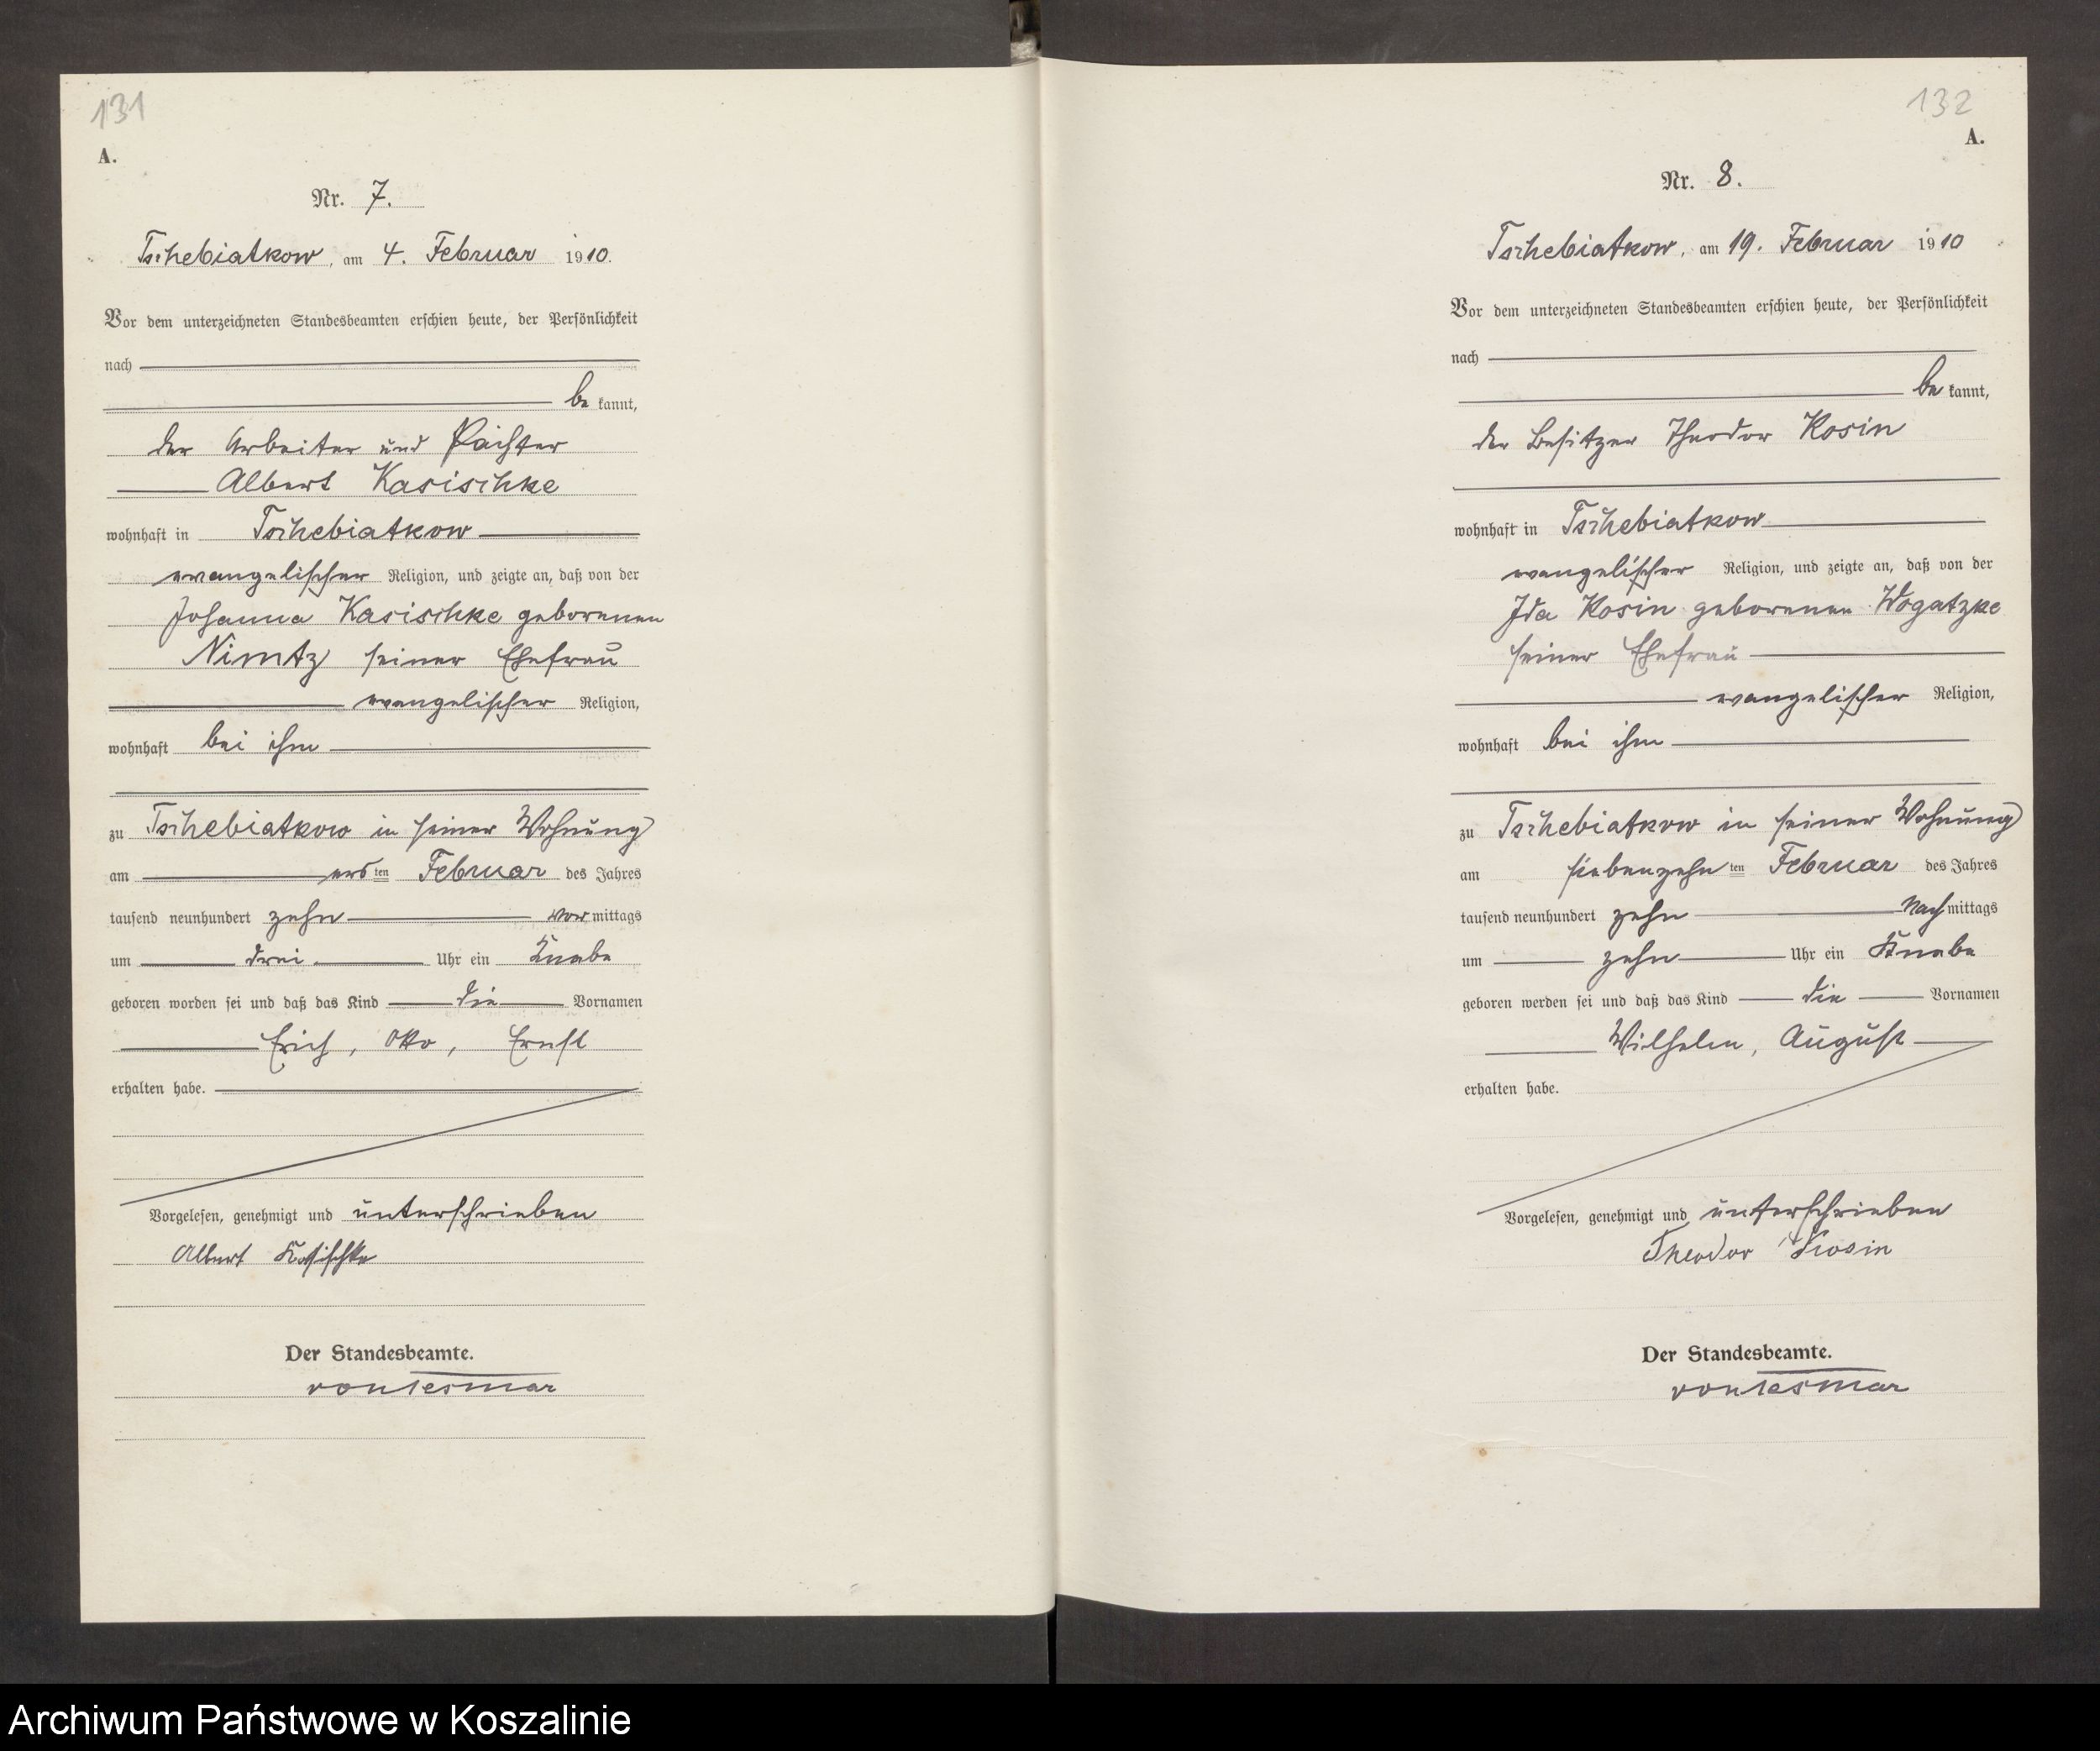 131
A.
Nr. 7.
Tschebiatkow, am 4. Februar 1910.
Vor dem unterzeichneten Standesbeamten erschien heute, der Persönlichkeit
nach
be kannt,
der Arbeiter und Pächter
Albert Kasischke
wohnhaft in Tschebiatkow
evangelischer Religion, und zeigte an, daß von der
Johanna Kasischke geborenen
Nimtz seiner Ehefrau
evangelischer Religion,
wohnhaft bei ihm
zu Tschebiatkow in seiner Wohnung
am ers ten Februar des Jahres
tausend neunhundert zehn vor mittags
um drei Uhr ein Knabe
geboren worden sei und daß das Kind die Vornamen
Erich, Otto, Ernst
erhalten habe.
Vorgelesen, genehmigt und unterschrieben
Albert Kasischke
Der Standesbeamte.
von Tesmar
132
A.
Nr. 8.
Tschebiatkow, am 19. Februar 1910
Vor dem unterzeichneten Standesbeamten erschien heute, der Persönlichkeit
nach
be kannt,
der Besitzer Theodor Kosin
wohnhaft in Tschebiatkow
evangelischer Religion, und zeigte an, daß von der
Ida Kosin geborenen Wogatzke
seiner Ehefrau
evangelischer Religion,
wohnhaft bei ihm
zu Tschebiatkow in seiner Wohnung
am siebenzehn ten Februar des Jahres
tausend neunhundert zehn Nach mittags
um zehn Uhr ein Knabe
geboren werden sei und daß das Kind die Vornamen
Wilhelm, August
erhalten habe.
Vorgelesen, genehmigt und unterschrieben
Theodor Kosin
Der Standesbeamte.
von Tesmar
Archiwum Państwowe w Koszalinie